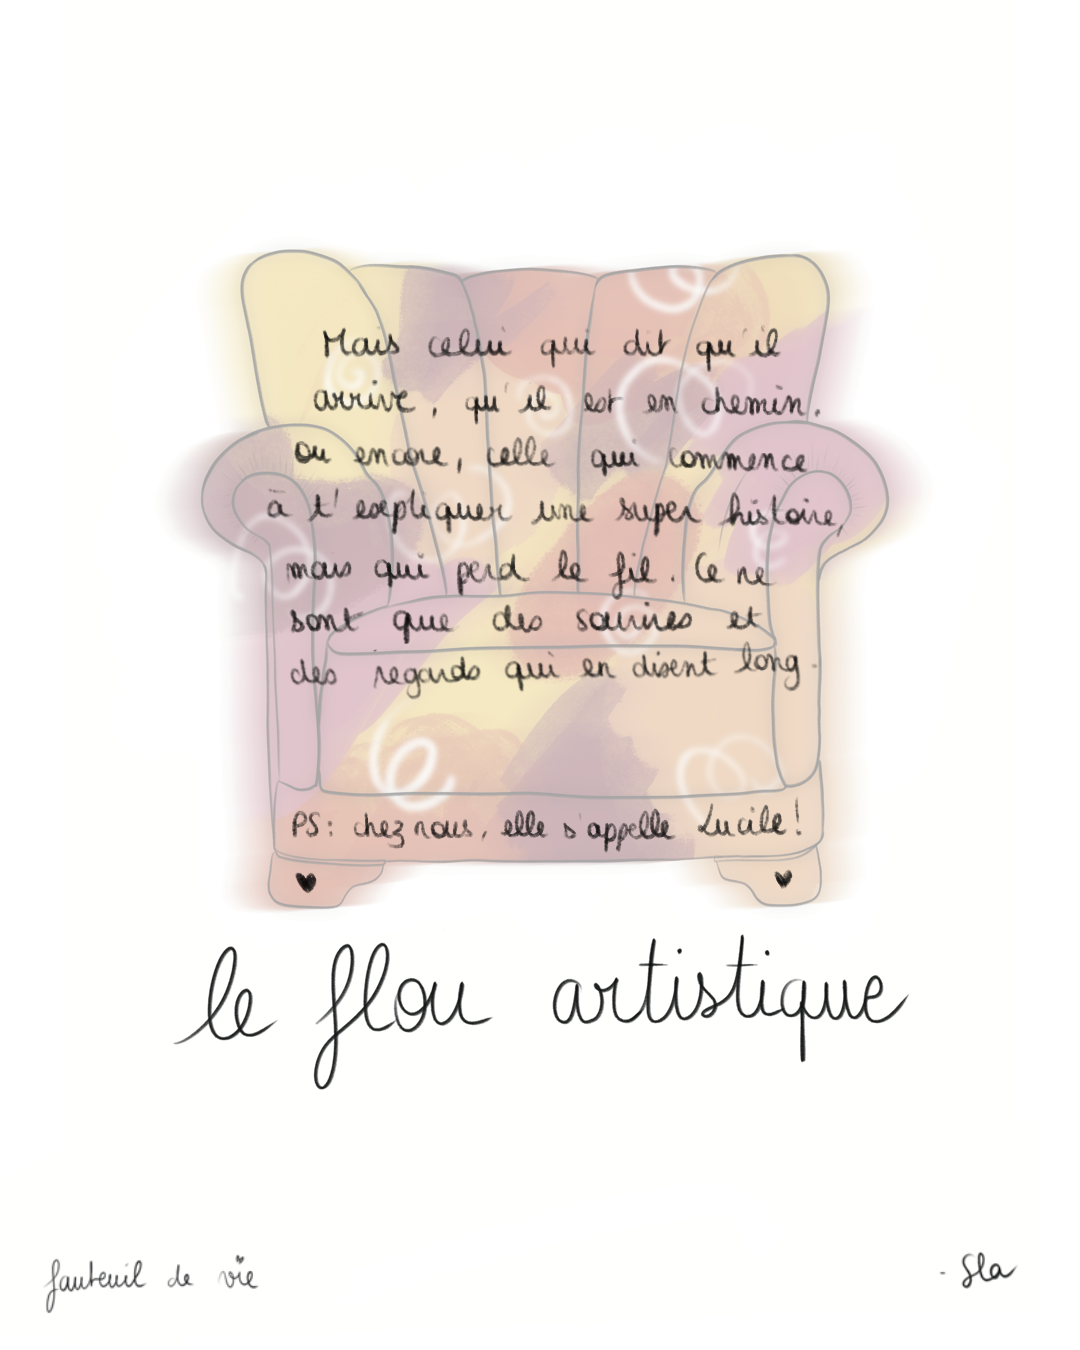 Mais celui qui dit qu'il
arrive, qu'il est en chemin.
ou encore, celle qui commence
à t'expliquer une super histoire,
mais qui perd le fil. Ce ne
sont que des sourires et
des regards qui en disent long.
PS: chez nous, elle s'appelle Lucile!
le flou artistique
fauteuil de vie
- Sla